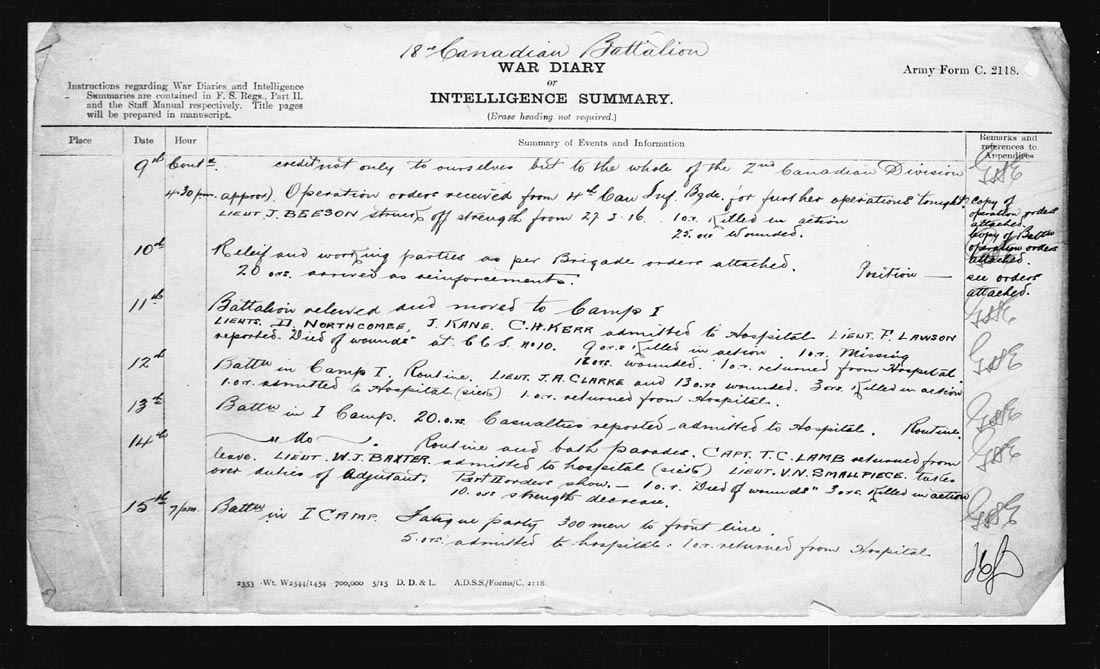 18th Canadian Battalion
WAR DIARY
or
INTELLIGENCE SUMMARY.
(Erase heading not required.)
Army Form C. 2118.
Instructions regarding War Diaries and Intelligence
Summaries are contained in F. S. Regs., Part II.
and the Staff Manual respectively. Title pages
will be prepared in manuscript.
Place Date Hour Summary of Events and Information Remarks and references to Appendices
9th Contd. credit not only to ourselves but to the whole of the 2nd Canadian Division
4.30 pm. approx). Operation orders received from 4th Can Inf. Bgde. for further operations tonight.
LIEUT J. BEESON struck off strength from 27.3.16. 1 o.r. Killed in action
25. ors wounded.
Copy of
operation orders
attached.
Copy of Battn
operation orders
attached.
10th Relief and working parties as per Brigade orders attached. Position — see orders
20 ors. arrived as reinforcements. attached.
11th Battalion relieved and moved to Camp I
LIEUTS. D. NORTHCOMBE, J. KANE. C.H. KERR admitted to Hospital LIEUT. F. LAWSON
reported "Died of wounds" at CCS. No 10. 9 o.r.s Killed in action. 1 o.r. Missing
12 ors. wounded. 1 o.r. returned from Hospital.
12th Battn in Camp I. Routine. LIEUT. J.A. CLARKE and 13 o.rs wounded. 3 ors. Killed in action
1. o.r. admitted to Hospital (sick) 1. o.r. returned from Hospital.
13th Battn in I Camp. 20. o.rs. Casualties reported admitted to Hospital. Routine.
14th — " do — ". Routine and bath parades. CAPT. T.C. LAMB returned from
leave. LIEUT. W.J. BAXTER admitted to hospital (sick) LIEUT. V.N. SMALLPIECE. takes
over duties of Adjutant. Part II orders show. — 1 o.r. "Died of wounds" 3 ors. Killed in action
10. ors strength decrease.
15th 7/pm. Battn in I CAMP. Fatigue party 300 men to front line.
5. ors. admitted to hospital. 1 o.r. returned from Hospital
2353 Wt. W2544/1454 700,000 5/15 D. D. & L. A.D.S.S./Forms/C. 2118.